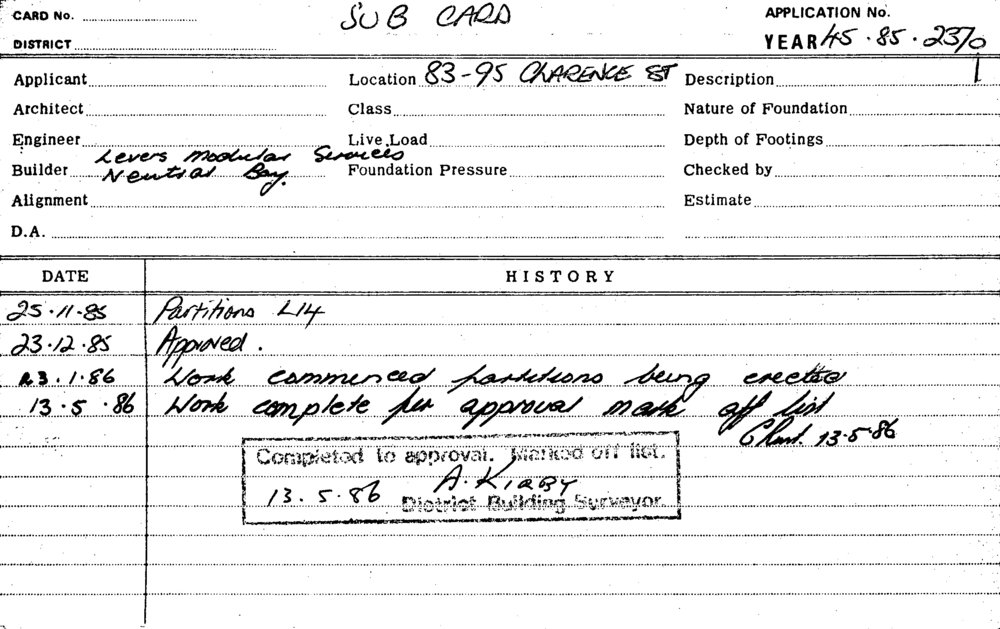 CARD No. SUB CARD APPLICATION No.
DISTRICT YEAR 45.85.2370
Applicant Location 83-95 CLARENCE ST Description 1
Architect Class Nature of Foundation
Engineer Live Load Depth of Footings
Levers Modular Services
Builder Neutral Bay. Foundation Pressure Checked by
Alignment Estimate
D.A.
DATE HISTORY
25.11.85 Partitions L14
23.12.85 Approved.
23.1.86 Work commenced partitions being erected
13.5.86 Work complete per approval mark off list
13.5.86
Completed to approval. Marked off list.
13.5.86 A. KIRBY
District Building Surveyor.